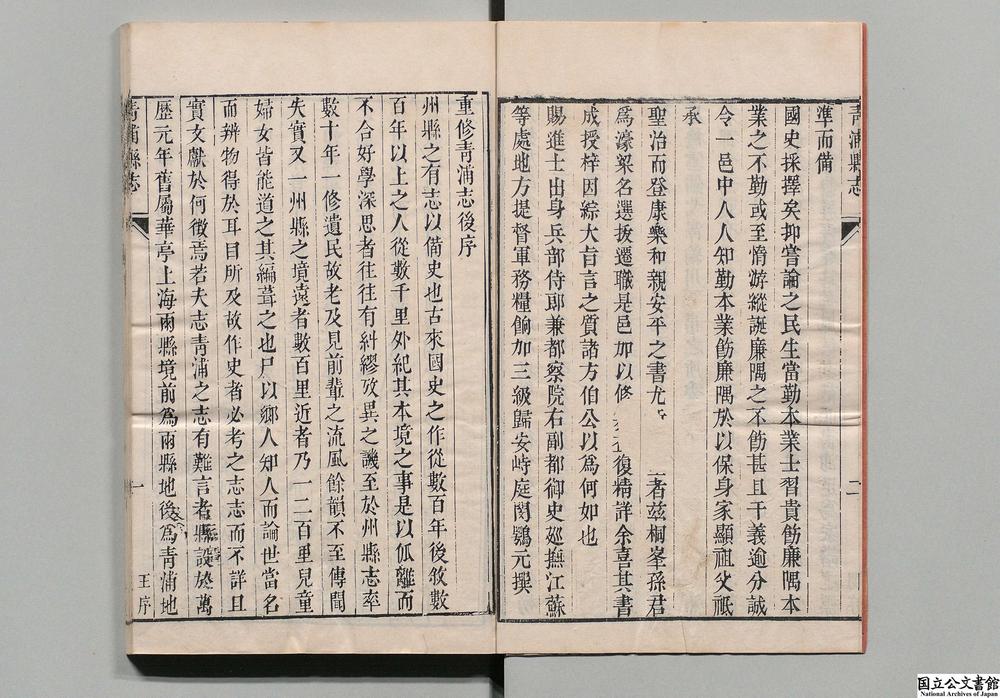 青浦縣志
準而備
國史採擇矣抑嘗論之民生當勤本業士習貴飭廉隅本
業之不勤或至惰游縱誕廉隅之不飭甚且干義逾分誠
令一邑中人人知勤本業飭廉隅於以保身家顯祖父祇
承
聖治而登康樂和親安平之書尤 者茲桐峯孫君
爲濠梁名選拔遷職是邑加以修 復精詳余喜其書
成授梓因綜大旨言之質諸方伯公以爲何如也
賜進士出身兵部侍郎兼都察院右副都御史廵撫江蘇
等處地方提督軍務糧餉加三級歸安峙庭閔鶚元撰
二
重修青浦志後序
州縣之有志以備史也古來國史之作從數百年後敘數
百年以上之人從數千里外紀其本境之事是以伍離而
不合好學深思者往往有糾繆攷異之譏至於州縣志率
數十年一修遺民故老及見前輩之流風餘韻不至傳聞
失實又一州縣之境遠者數百里近者乃一二百里見童
婦女皆能道之其編葺之也尸以鄉人知人而論世當名
而辨物得於耳目所及故作史者必考之志志而不詳且
實文獻於何徵焉若夫志青浦之志有難言者縣設於萬
歷元年舊屬華亭上海兩縣境前爲兩縣地後爲青浦地
青浦縣志
一
王序
国立公文書館
National Archives of Japan